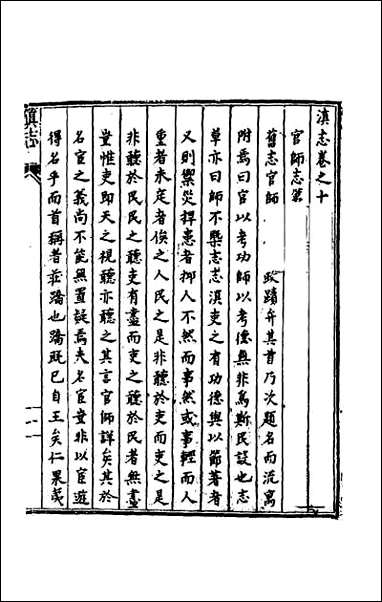 滇志卷之十
官師志第
舊志官師　政蹟弁其首乃次題名而流寓
附焉曰官以考功師以考德無非為斯民設也志
草亦曰師不槩志志滇吏之有功德與以節著者
又則禦災捍患者抑人不然而事然或事輕而人
重者未定者俟之人民之是非聽於吏而吏之是
非聽於民民之聽吏有盡而吏之聽於民者無盡
豈惟吏即天之視聽亦聽之其言官師詳矣其於
名宦之義尚不能無置疑焉夫名宦豈非以宦遊
得名乎而首稱者莊蹻也蹻既已自王矣仁果夷
滇志